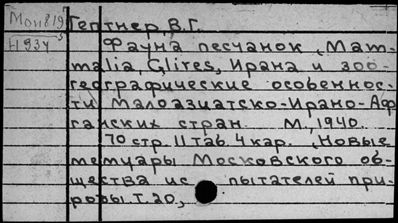 Мои819 Гептнер, В.Г.
П934 Фауна песчанок (Mam-
malia, Glires, Ирана и зоо-
географические особеннос-
ти Малоазиатско-Ирано-Аф-
ганских стран. М., 1940.
70 стр. 11 таб. 4 кар. (Новые
мемуары Московского об-
щества ис пытателей при-
роды. Т. 20,